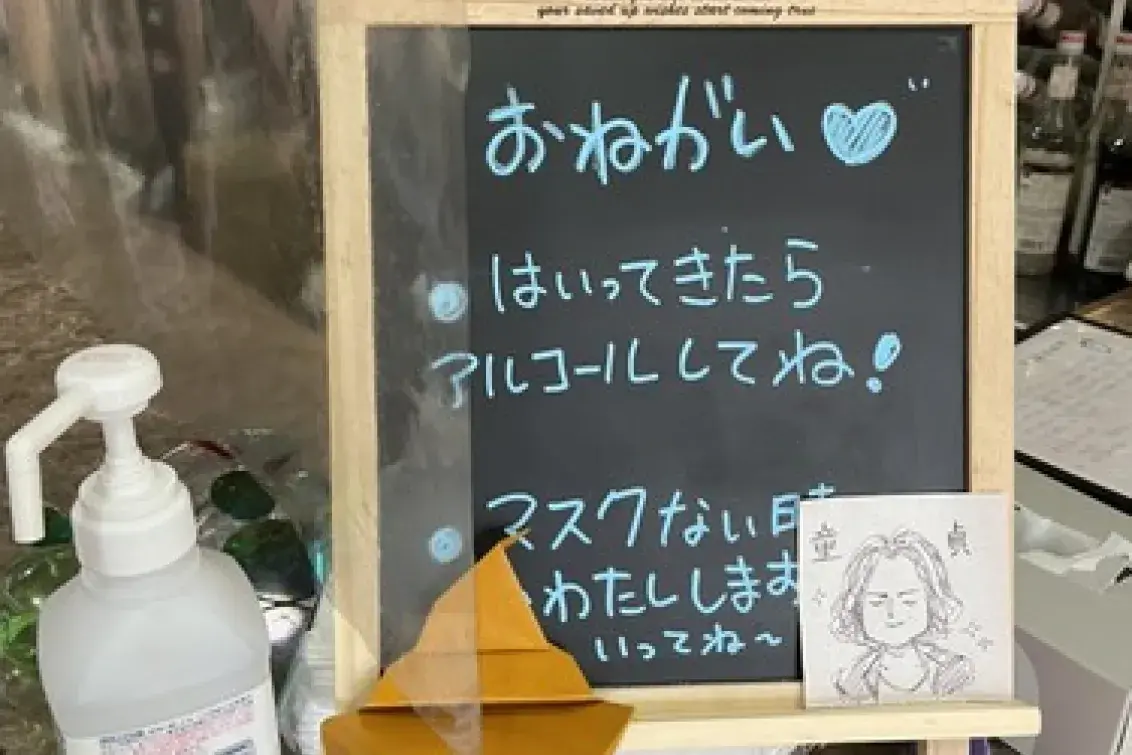 your saved up wishes start coming true
おねがい
はいってきたら
アルコールしてね!
マスクない時
わたしします
いってね〜
童 貞